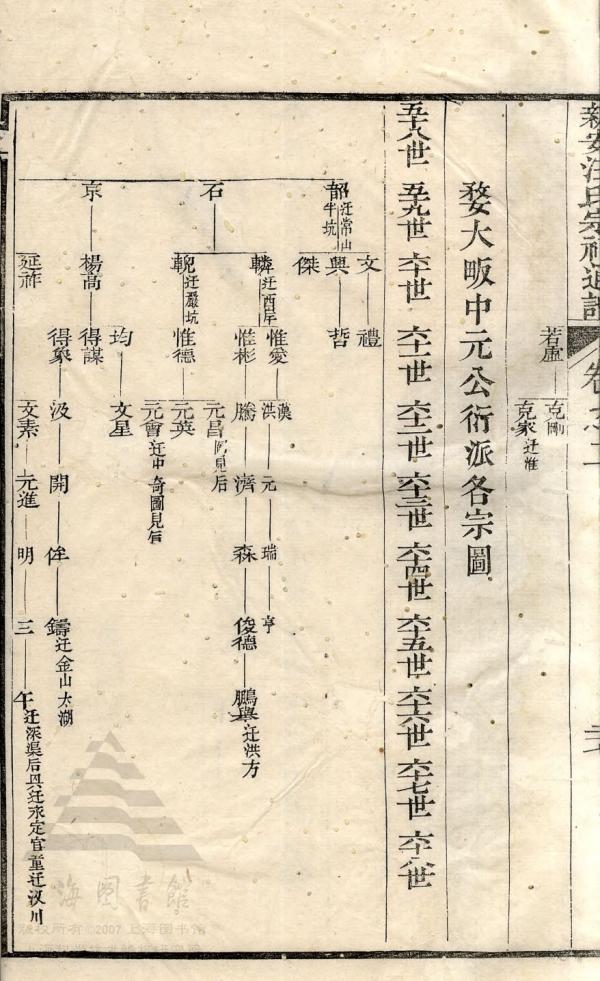 新安汪氏宗祠通譜
卷之二
若虛
克剛
克家迁淮
婺大畈中元公衍派各宗圖
五十八世 五十九世 六十世 六十一世 六十二世 六十三世 六十四世 六十五世 六十六世 六十七世 六十八世
文 禮
韶迁常山半坑 興 哲
傑
惟愛 漢
洪 元 瑞 亨
石 轔迁西岸 惟彬 騰 濟 森 俊德 鵬舉迁洪方
元昌 見后
輗迁嚴坑 惟德 元英
元會迁中 奇圖見后
均 文星
京 楊高 得謀
得象 汲 開 侔 鑄迁金山太湖
延祚 文素 元進 明 三 午迁深渠后與迁永定官童迁汊川
海圖書館
版权所有©2007 上海图书馆